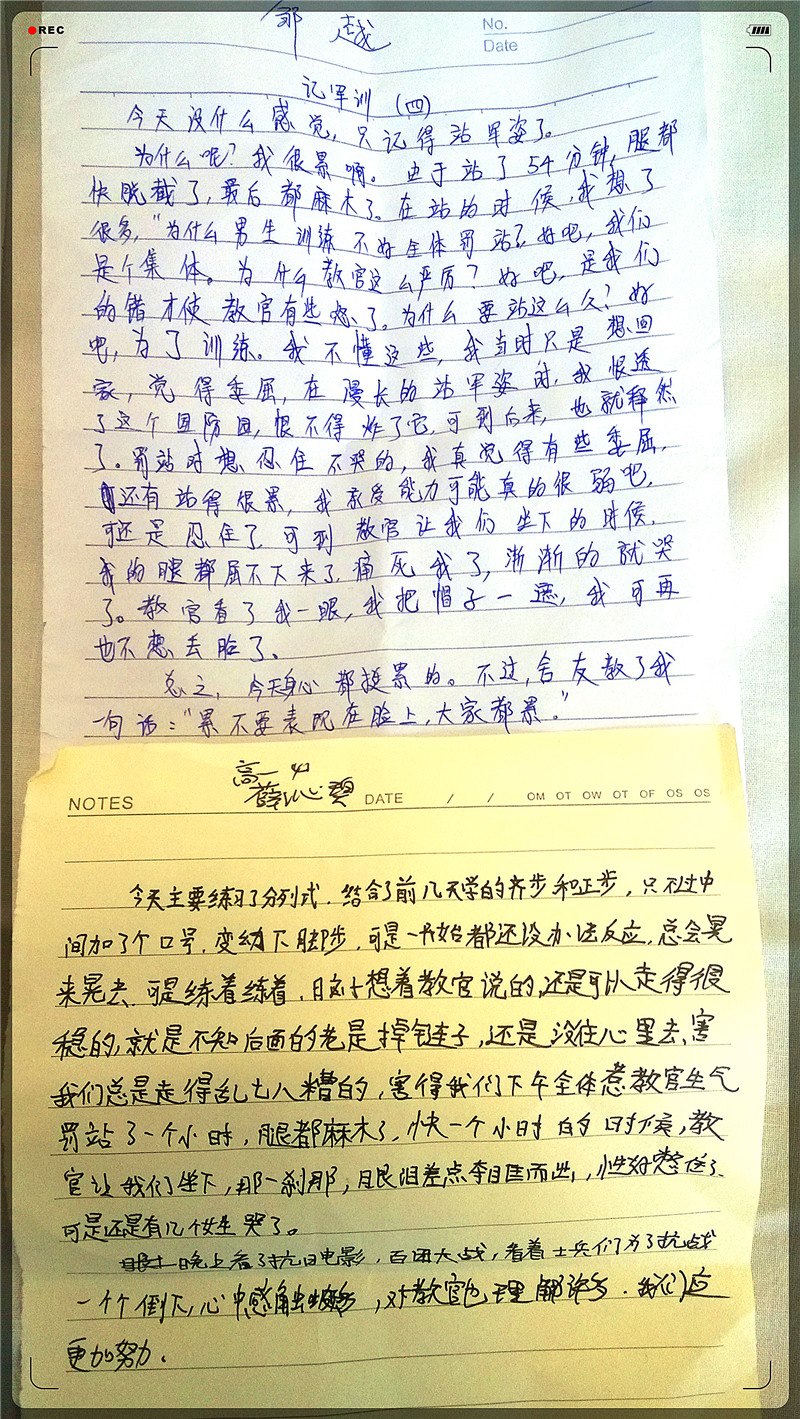 REC
邹越
No.
Date
记军训 (四)
今天没什么感觉,只记得站军姿了。
为什么呢?我很累啊。由于站了54分钟,腿都
快脱截了,最后都麻木了。在站的时候,我想了
很多,"为什么男生训练不好全体罚站?好吧,我们
是个集体。为什么教官这么严厉?好吧,是我们
的错才使教官有些怒了。为什么要站这么久?好
吧,为了训练。我不懂这些,我当时只是想回
家,觉得委屈,在漫长的站军姿时,我恨透
了这个国防园,恨不得炸了它,可到后来,也就释然
了。罚站时想忍住不哭的,我真觉得有些委屈,
还有站得很累,我承受能力可能真的很弱吧,
可还是忍住了,可到教官让我们坐下的时候,
我的腿都屈不下来了,痛死我了,渐渐的就哭
了。教官看了我一眼,我把帽子一遮,我可再
也不想丢脸了。
总之,今天身心都挺累的。不过,舍友教了我
一句话:"累不要表现在脸上,大家都累。"
高一4
NOTES 薛心 DATE / / OM OT OW OT OF OS OS
今天主要练习了分列式,结合了前几天学的齐步和正步,只不过中
间加了个口号,变动下脚步,可是一开始都还没办法反应,总会晃
来晃去,可是练着练着,想着教官说的,还是可以走得很
稳的,就是不知后面的老是掉链子,还是没往心里去,害
我们总是走得乱七八糟的,害得我们下午全体惹教官生气
罚站了一个小时,腿都麻木了,快一个小时的时候,教
官让我们坐下,那一刹那,眼泪差点夺眶而出,恰好憋住了,
可是还是有几个女生哭了。
晚上看了抗日电影,百团大战,看着士兵们为了抗战
一个个倒下,心中感触,对教官也理解许多。我们应
更加努力。